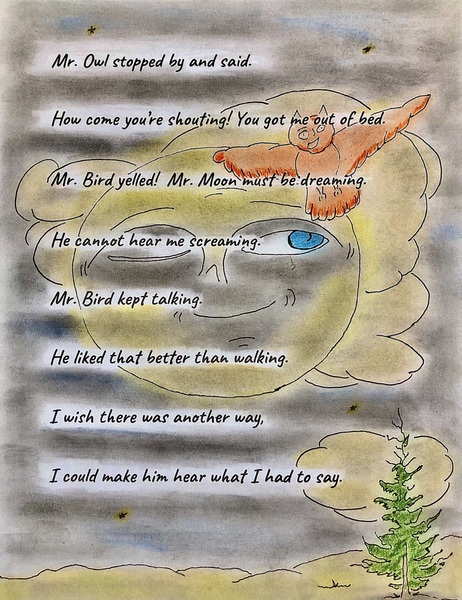 Mr. Owl stopped by and said.
How come you're shouting! You got me out of bed.
Mr. Bird yelled! Mr. Moon must be dreaming.
He cannot hear me screaming.
Mr. Bird kept talking.
He liked that better than walking.
I wish there was another way,
I could make him hear what I had to say.